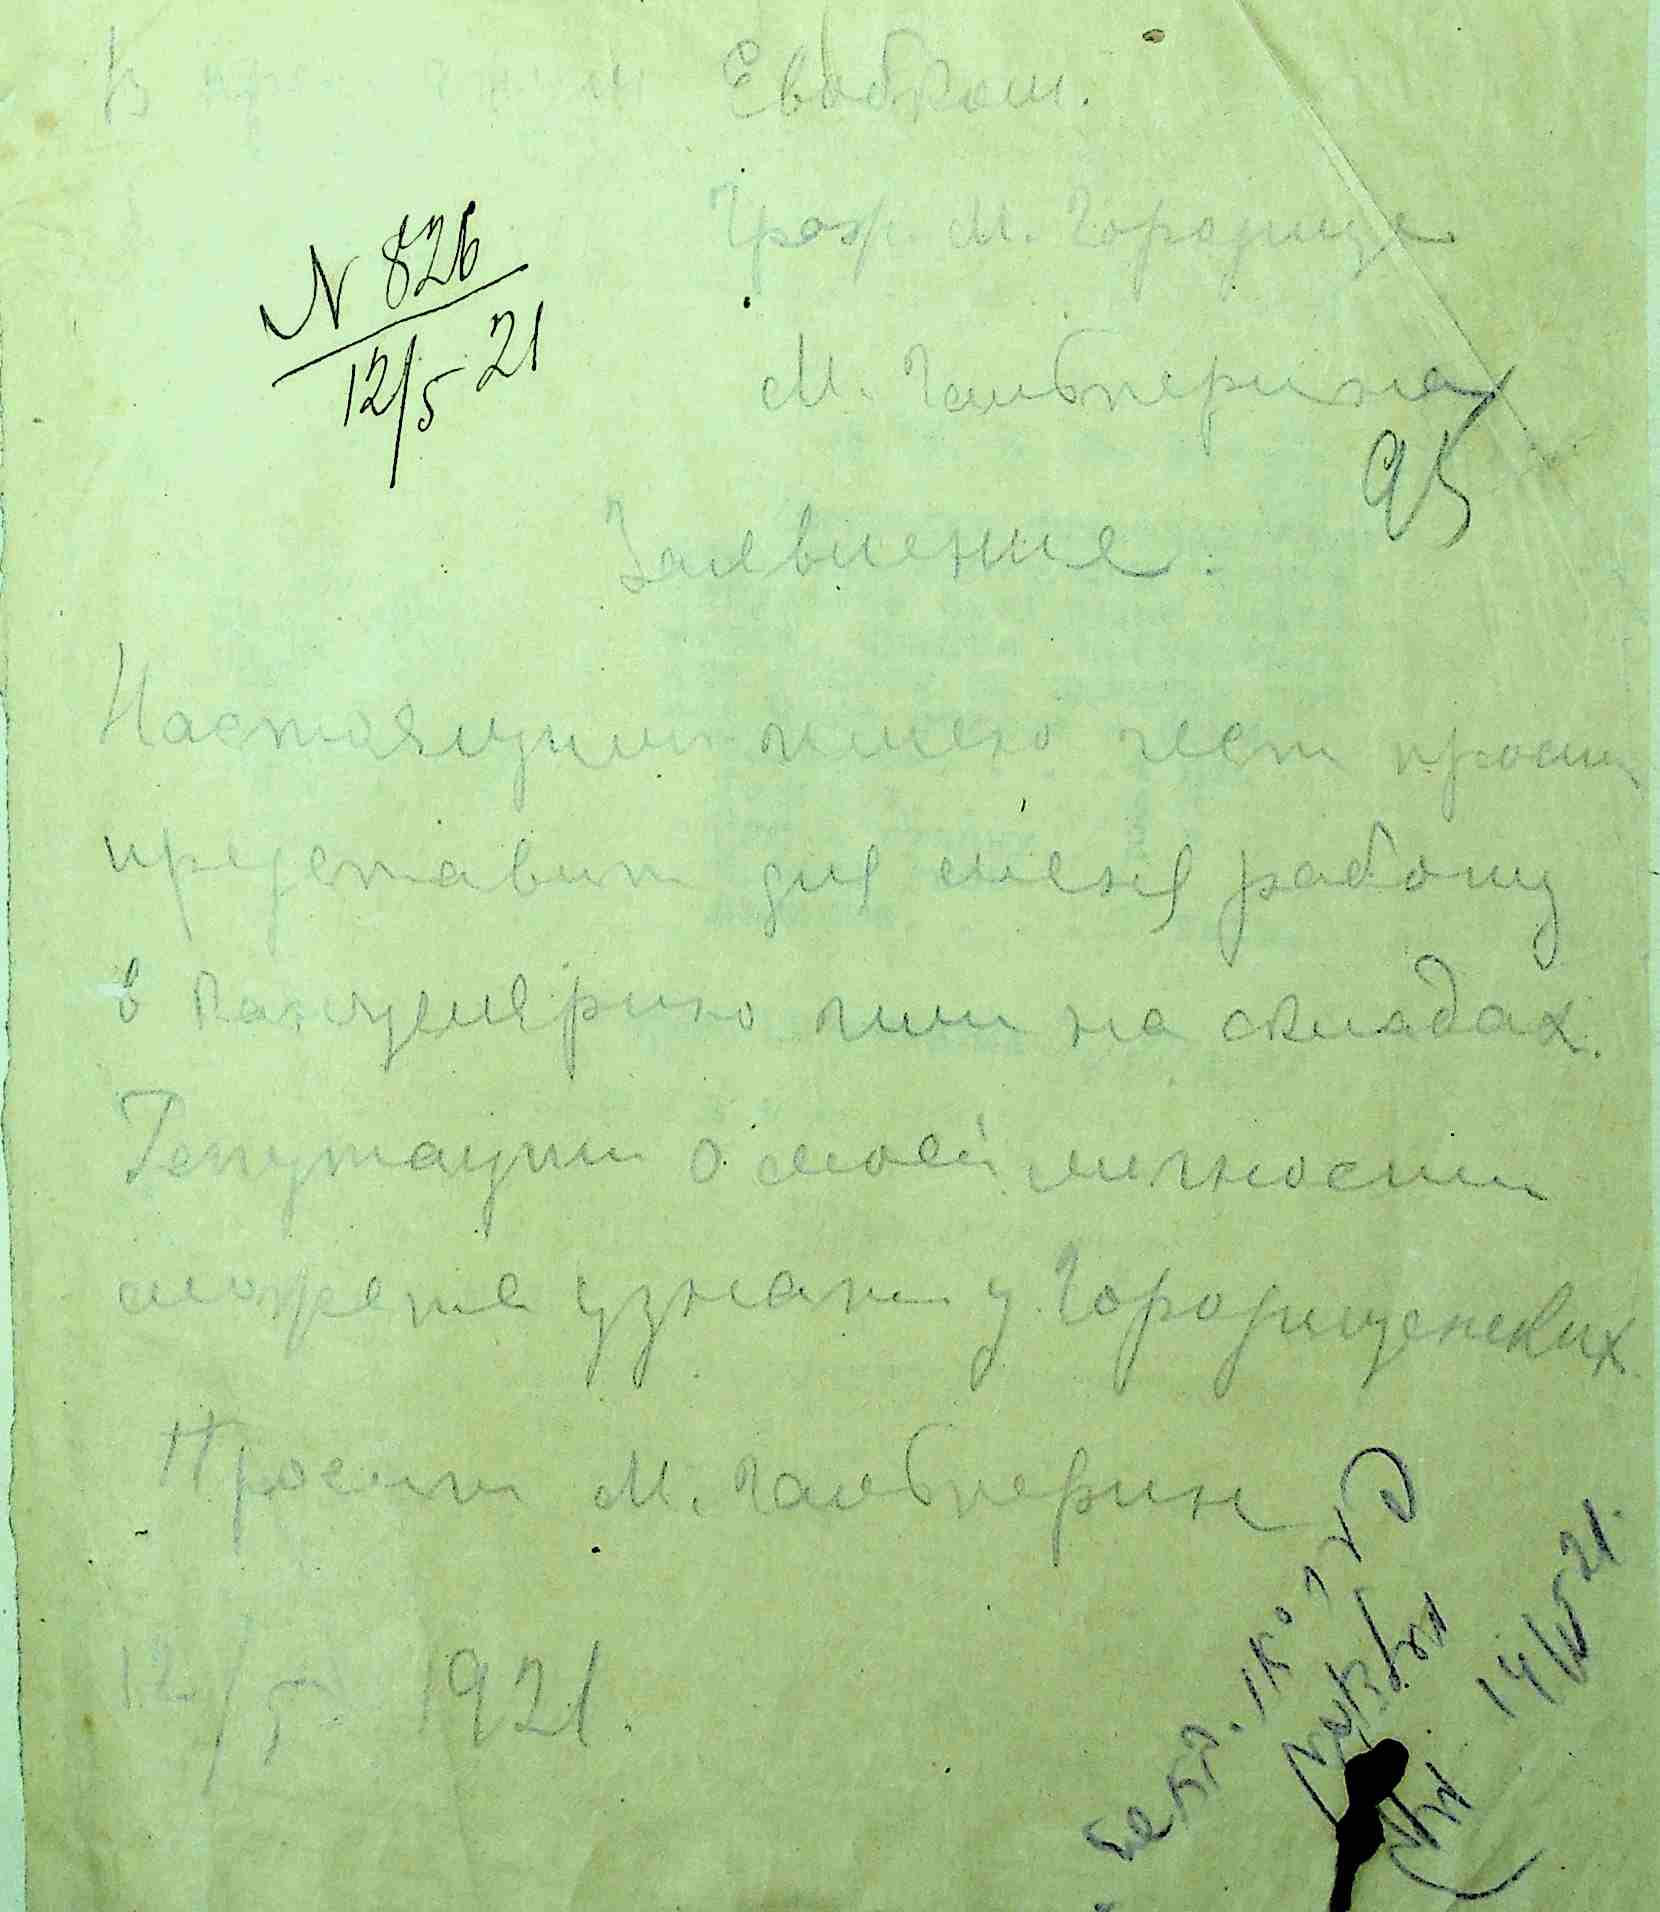 В Евобком.
N 826
12/5 21
Граж. М. Городища
М. Гальперина
95
Заявление.
Настоящим имею чест просит
представит для меня работу
в канцелярию или на складах.
Репутации о моей личности
можете узнат у Городищенских.
Просит М. Гальперин
12/5 1921.
14/V 21.